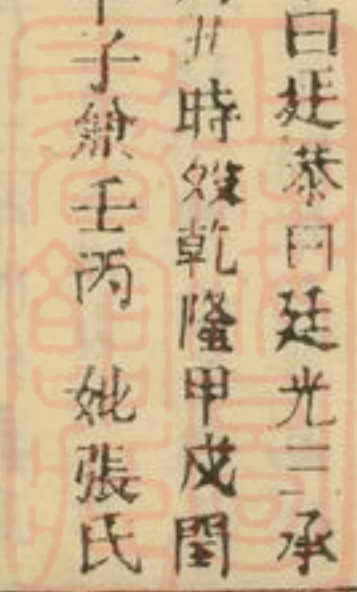 曰廷恭曰廷光三承
丑時歿乾隆甲戌閏
子兼壬丙 妣張氏